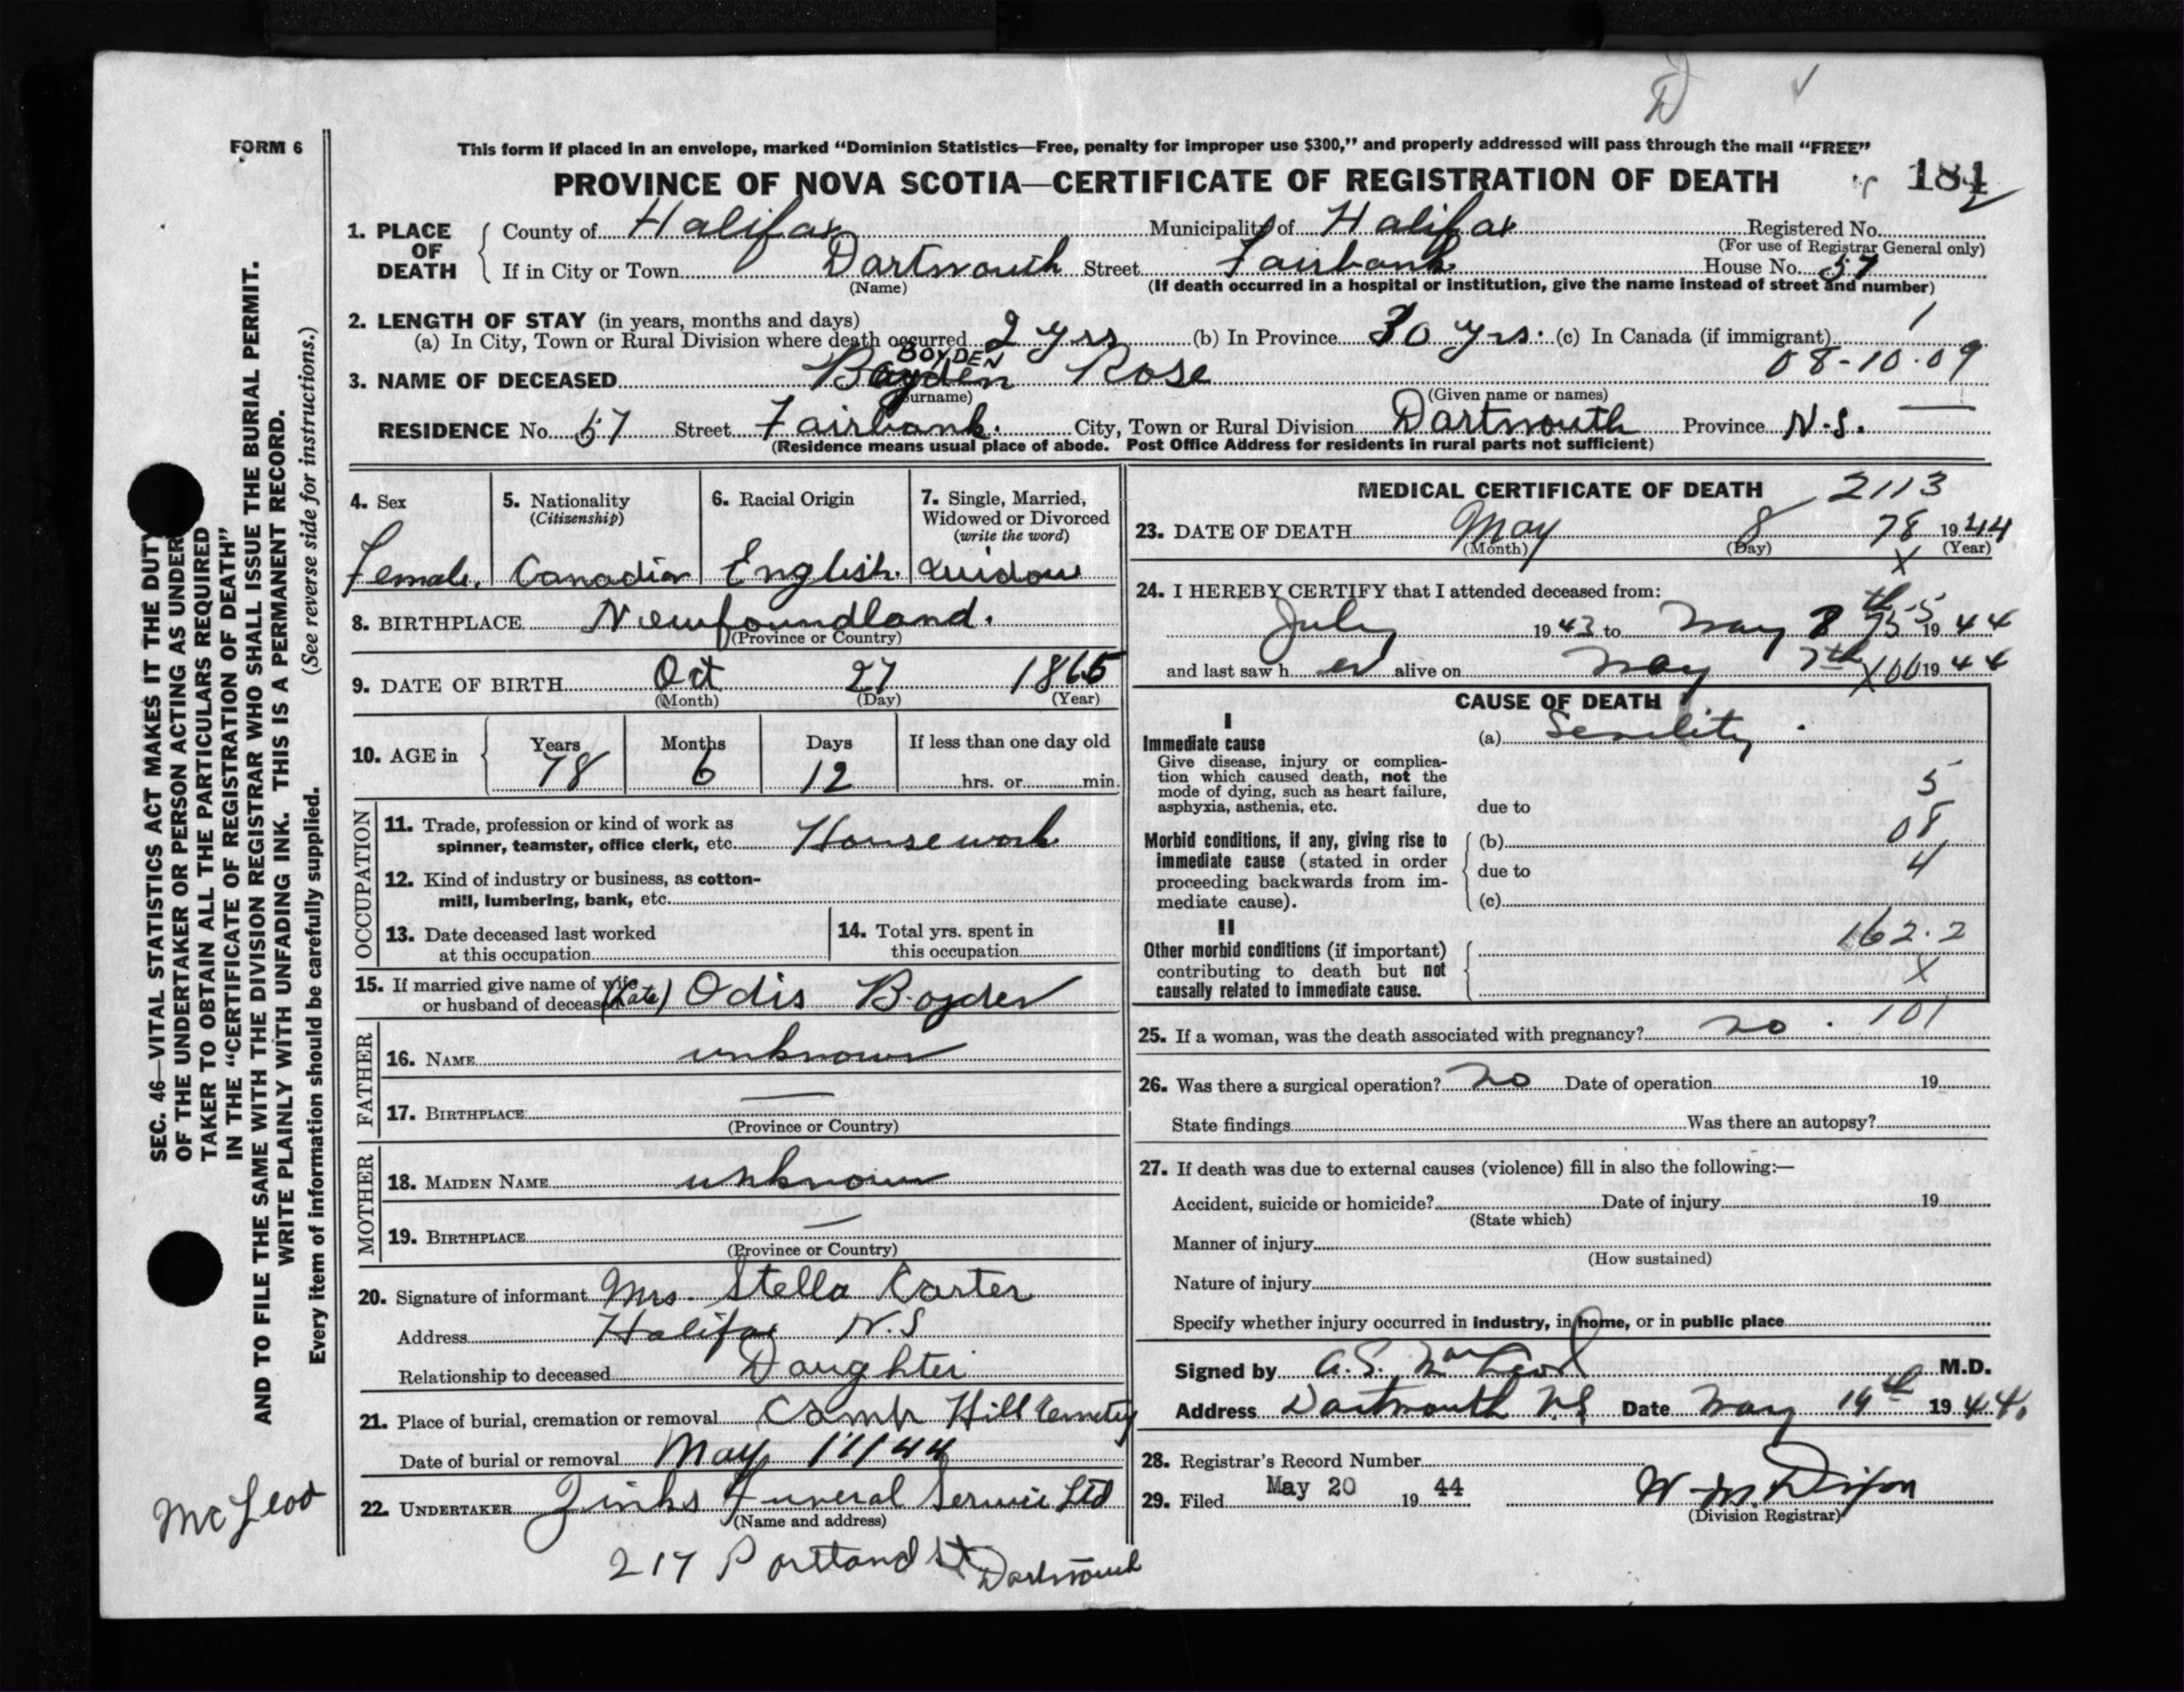 D ✓
FORM 6
This form if placed in an envelope, marked “Dominion Statistics—Free, penalty for improper use $300,” and properly addressed will pass through the mail “FREE”
PROVINCE OF NOVA SCOTIA—CERTIFICATE OF REGISTRATION OF DEATH 181
1. PLACE OF DEATH County of Halifax Municipality of Halifax Registered No.
(For use of Registrar General only)
If in City or Town Dartmouth Street Fairbank House No. 57
(Name) (If death occurred in a hospital or institution, give the name instead of street and number)
2. LENGTH OF STAY (in years, months and days) 1
(a) In City, Town or Rural Division where death occurred 2 yrs (b) In Province 30 yrs. (c) In Canada (if immigrant)
BOYDEN 08-10-09
3. NAME OF DECEASED Boyden Rose
(Surname) (Given name or names)
RESIDENCE No. 57 Street Fairbank. City, Town or Rural Division Dartmouth Province N.S.
(Residence means usual place of abode. Post Office Address for residents in rural parts not sufficient)
4. Sex 5. Nationality (Citizenship) 6. Racial Origin 7. Single, Married, Widowed or Divorced (write the word)
Female. Canadian English. Widow
8. BIRTHPLACE Newfoundland.
(Province or Country)
9. DATE OF BIRTH Oct 27 1865
(Month) (Day) (Year)
10. AGE in Years Months Days If less than one day old
78 6 12 hrs. or min.
OCCUPATION
11. Trade, profession or kind of work as spinner, teamster, office clerk, etc. Housework
12. Kind of industry or business, as cotton-mill, lumbering, bank, etc.
13. Date deceased last worked at this occupation
14. Total yrs. spent in this occupation
15. If married give name of wife or husband of deceased (Late) Odis Boyden
FATHER
16. NAME unknown
17. BIRTHPLACE —
(Province or Country)
MOTHER
18. MAIDEN NAME unknown
19. BIRTHPLACE —
(Province or Country)
20. Signature of informant Mrs. Stella Carter
Address Halifax N.S
Relationship to deceased Daughter
21. Place of burial, cremation or removal Camp Hill Cemetery
Date of burial or removal May 11/44
22. UNDERTAKER Zinks Funeral Service Ltd
(Name and address)
217 Portland St. Dartmouth
MEDICAL CERTIFICATE OF DEATH 2113
23. DATE OF DEATH May 8 78 1944
(Month) (Day) X (Year)
24. I HEREBY CERTIFY that I attended deceased from:
July 1943 to May 8th 1944
and last saw her alive on May 7th 1944
CAUSE OF DEATH
I
Immediate cause (a) Senility.
Give disease, injury or complica-
tion which caused death, not the
mode of dying, such as heart failure,
asphyxia, asthenia, etc. due to
5
08
4
Morbid conditions, if any, giving rise to (b)
immediate cause (stated in order
proceeding backwards from im- due to
mediate cause). (c)
II
Other morbid conditions (if important) 162.2
contributing to death but not X
causally related to immediate cause.
25. If a woman, was the death associated with pregnancy? no. 101
26. Was there a surgical operation? no Date of operation 19
State findings Was there an autopsy?
27. If death was due to external causes (violence) fill in also the following:—
Accident, suicide or homicide? Date of injury 19
(State which)
Manner of injury
(How sustained)
Nature of injury
Specify whether injury occurred in industry, in home, or in public place
Signed by A.S. MacLeod M.D.
Address Dartmouth N.S. Date May 19th 1944.
28. Registrar's Record Number
29. Filed May 20 19 44 W. M. Dixon
(Division Registrar)
SEC. 46—VITAL STATISTICS ACT MAKES IT THE DUTY
OF THE UNDERTAKER OR PERSON ACTING AS UNDER
TAKER TO OBTAIN ALL THE PARTICULARS REQUIRED
IN THE “CERTIFICATE OF REGISTRATION OF DEATH”
AND TO FILE THE SAME WITH THE DIVISION REGISTRAR WHO SHALL ISSUE THE BURIAL PERMIT.
WRITE PLAINLY WITH UNFADING INK. THIS IS A PERMANENT RECORD.
Every item of information should be carefully supplied. (See reverse side for instructions.)
McLeod